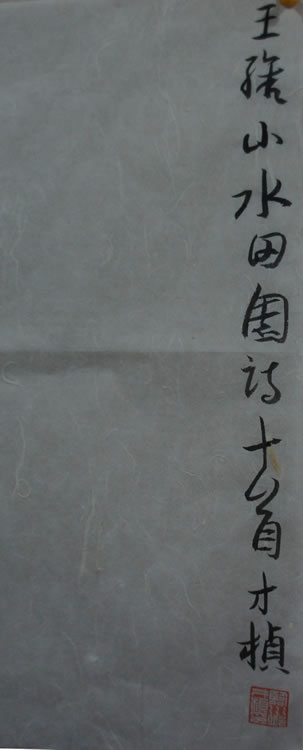 王維山水田園诗十首才楨